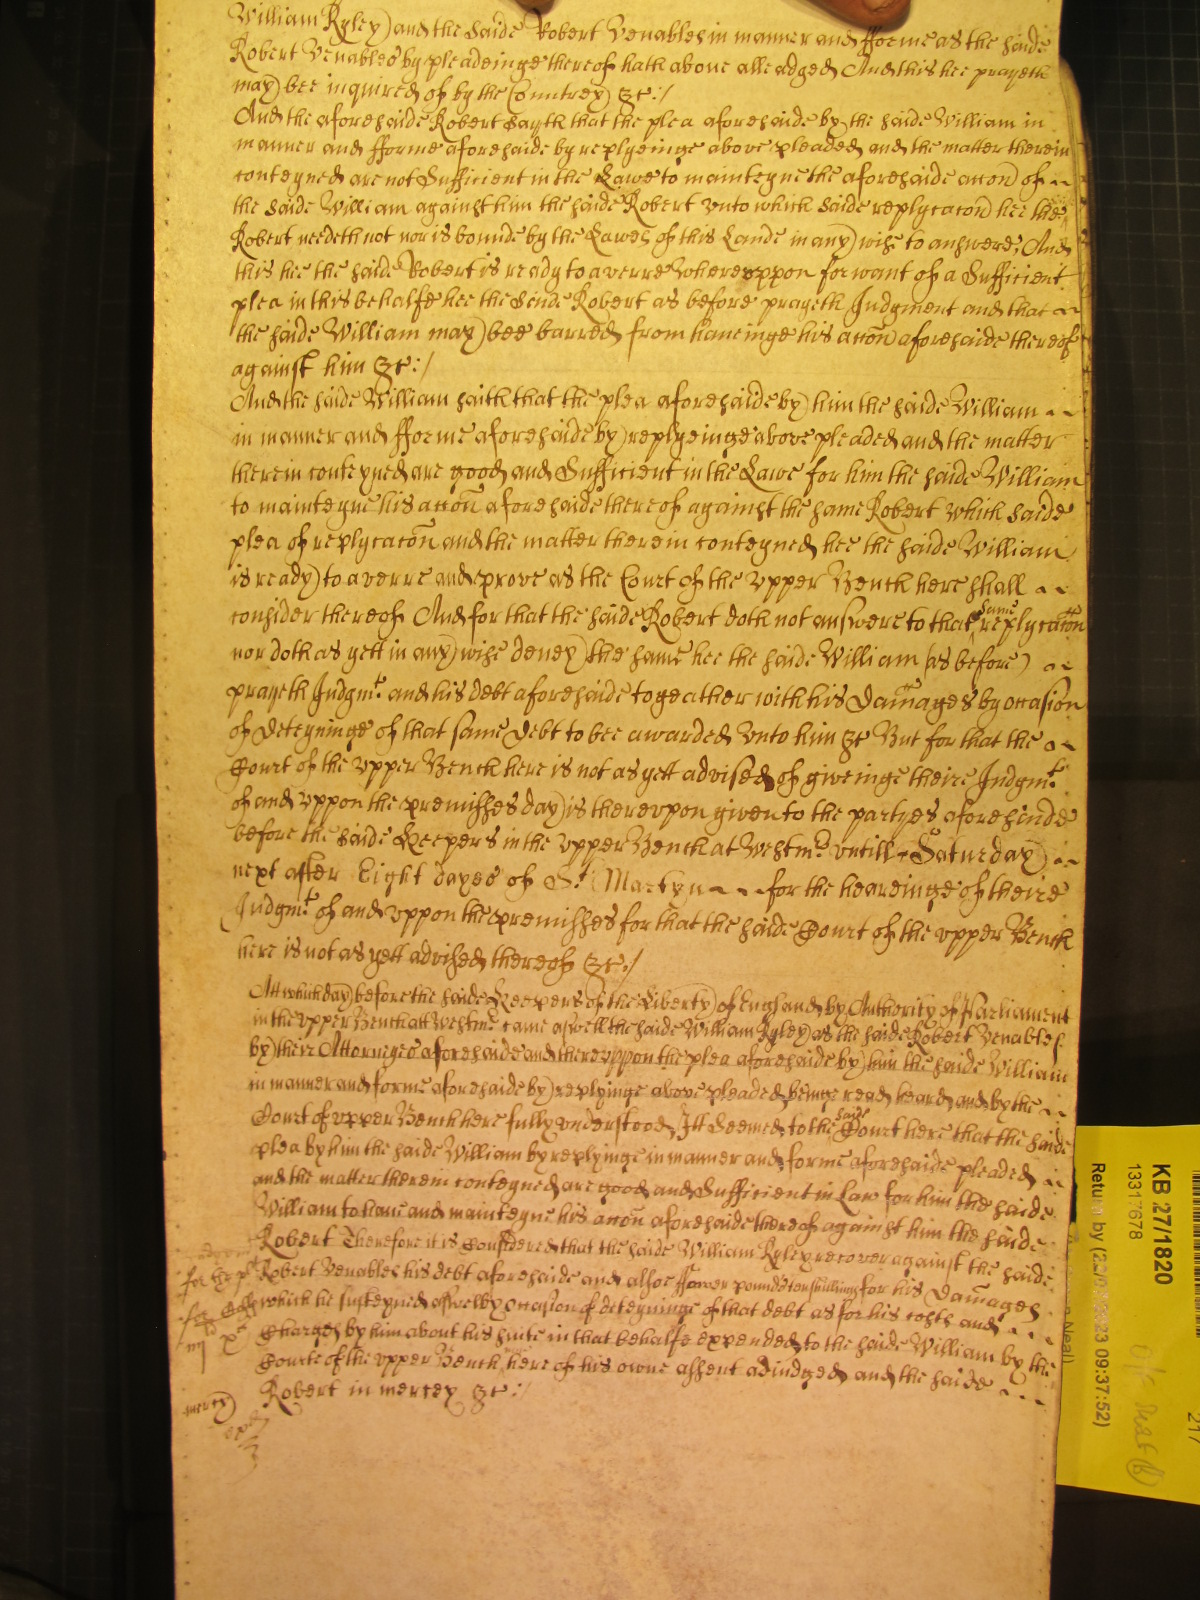 William Ryley and the saide Robert Venables in manner and fforme as the saide
Robert Venables by pleadeinge thereof hath above alleadged And this hee prayeth
may bee inquired of by the Countrey &c:/
And the aforesaide Robert Sayth that the plea aforesaide by the saide William in
manner and fforme aforesaide by replyeinge above pleaded and the matter therein
conteyned are not Sufficient in the Lawe to mainteyne the aforesaide accon of
the Saide William against him the saide Robert vnto which Saide replycacon hee the
Robert needeth not nor is bounde by the Lawes of this Lande in any wise to answere, And
this hee the saide Robert is ready to averre Wherevppon for want of a Sufficient
plea in this behalfe hee the Saide Robert as before prayeth Judgment and that
the saide William may bee barred from haveinge his accon aforesaide thereof
against him &c:/
And the saide William saith that the plea aforesaide by him the saide William
in manner and fforme aforesaide by replyeinge above pleaded and the matter
therein conteyned are good and Sufficient in the Lawe for him the saide William
to mainteyne his accon aforesaide thereof against the same Robert which Saide
plea of replycacon and the matter therein conteyned hee the saide William
is ready to averre and prove as the Court of the vpper Bench here shall
consider thereof And for that the saide Robert doth not answere to that same replycacon
nor doth as yett in any wise deney the same hee the saide William (as before)
prayeth Judgmt. and his debt aforesaide togeather with his Damages by occasion
of deteyninge of that same debt to bee awarded vnto him &c But for that the
Court of the vpper Bench here is not as yett advised of giveinge theire Judgmt.
of and vppon the premisses day is therevpon given to the partyes aforesaide
before the saide Keepers in the vpper Bench at Westmr. vntill Saturday
next after Eight dayes of St. Martyn for the heareinge of theire
Judgmt. of and vppon the premisses for that the saide Court of the vpper Bench
here is not as yett advised thereof &c:/
Att which day before the saide Keepers of the Liberty of England by Authority of Parliament
in the vpper Bench att Westmr. came aswell the saide William Ryley as the saide Robert Venables
by their Attorneyes aforesaide and therevppon the plea aforesaide by him the saide William
in manner and forme aforesaide by replyinge above pleaded beinge read heard and by the
Court of vpper Bench here fully vnderstood, Itt Seemed to the said Court here that the saide
plea by him the saide William by replyinge in manner and forme aforesaide pleaded
and the matter therein conteyned are good and Sufficient in Law for him the saide
William to have and mainteyne his accon aforesaide thereof against him the saide
Robert Therefore it is Considered that the saide William Ryley recover against the saide
for the plt Robert Venables his debt aforesaide and alsoe ffower pounds ten shillings for his Damages
which he susteyned aswell by occasion of deteyninge of that debt as for his costs and
Charges by him about his suite in that behalfe expended to the saide William by the
Courte of the vpper Bench here of his owne assent adiudged and the saide
Robert in mercey &c:/
mercy
KB 27/1820
13317678
Return by (
09:37:52)
217